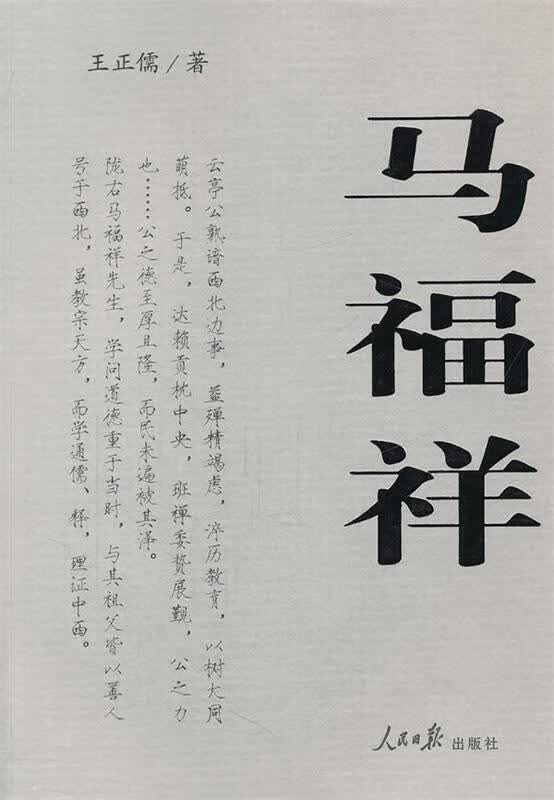 王正儒/著
马福祥
云亭公熟谙西北边事，益殚精竭虑，淬历教育，以树大同
萌抵。于是，达赖贡忱中央，班禅委贽展觐，公之力
也……公之德至厚且隆，而民未遍被其泽。
陇右马福祥先生，学问道德重于当时，与其祖父皆以善人
号于西北，虽教宗天方，而学通儒、释，理证中西。
人民日报出版社